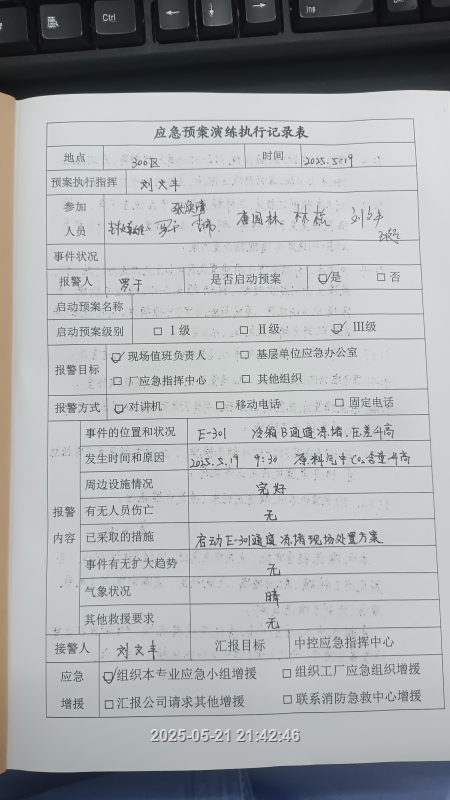 Ctrl
应急预案演练执行记录表
地点 300区 时间 2025.5.19
预案执行指挥 刘文丰
参加
人员 唐国林
事件状况
报警人 罗干 是否启动预案 ☑是 □否
启动预案名称
启动预案级别 □Ⅰ级 □Ⅱ级 ☑Ⅲ级
报警目标 ☑现场值班负责人 □基层单位应急办公室
□厂应急指挥中心 □其他组织
报警方式 ☑对讲机 □移动电话 □固定电话
报警
内容
事件的位置和状况 E-301 冷箱B通道冻堵,压差升高
发生时间和原因 2025.5.19 9:30 原料气中CO₂含量升高
周边设施情况 完好
有无人员伤亡 无
已采取的措施 启动E-301通道冻堵现场处置方案
事件有无扩大趋势 无
气象状况 晴
其他救援要求 无
接警人 刘文丰 汇报目标 中控应急指挥中心
应急 ☑组织本专业应急小组增援 □组织工厂应急组织增援
增援 □汇报公司请求其他增援 □联系消防急救中心增援
2025-05-21 21:42:46